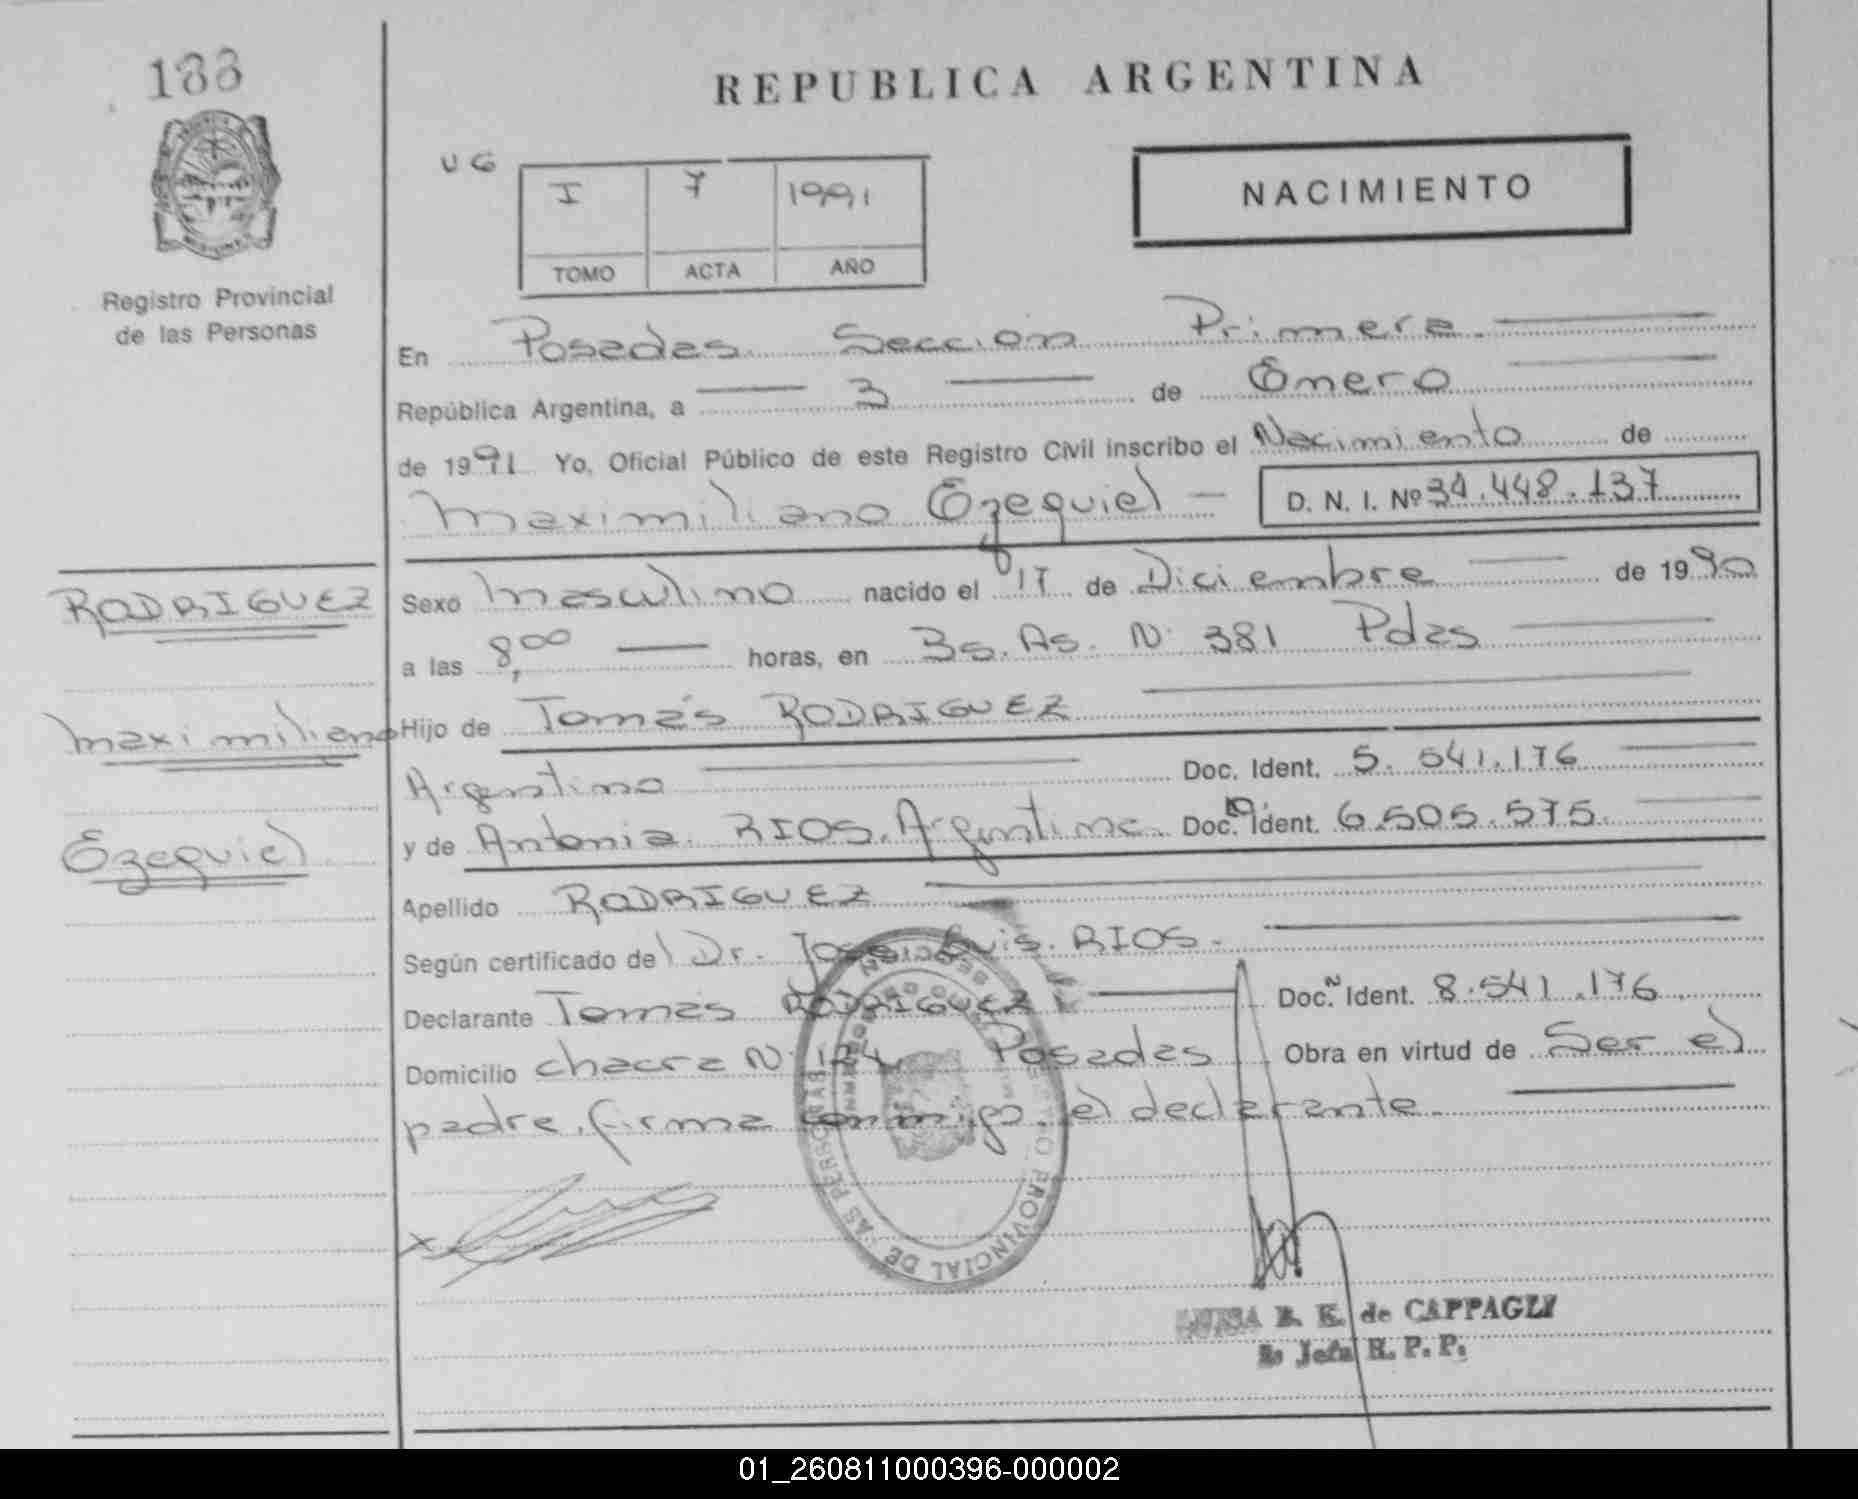 188
REPUBLICA ARGENTINA
UG
I 7 1991
TOMO ACTA AÑO
NACIMIENTO
Registro Provincial
de las Personas
En Posadas Seccion Primera
República Argentina, a 3 de Enero
de 1991 Yo, Oficial Público de este Registro Civil inscribo el Nacimiento de
Maximiliano Ezequiel D. N. I. Nº 34.448.137
RODRIGUEZ
Maximiliano
Ezequiel
Sexo Masculino nacido el 17 de Diciembre de 1990
a las 8,00 horas, en Bs. As. Nº 381 Pdas
Hijo de Tomás RODRIGUEZ
Argentino Doc. Ident. 5.541.176
y de Antonia RIOS. Argentina Doc. Ident. 6.505.575.
Apellido RODRIGUEZ
Según certificado de Dr. José Luis RIOS.
Declarante Tomás RODRIGUEZ Doc. Ident. 8.541.176
Domicilio chacra Nº Posadas Obra en virtud de Ser el
padre. firma conmigo el declarante.
REGISTRO PROVINCIAL DE LAS PERSONAS
LUISA B. E. de CAPPAGLI
Jefa R. P. P.
01_260811000396-000002